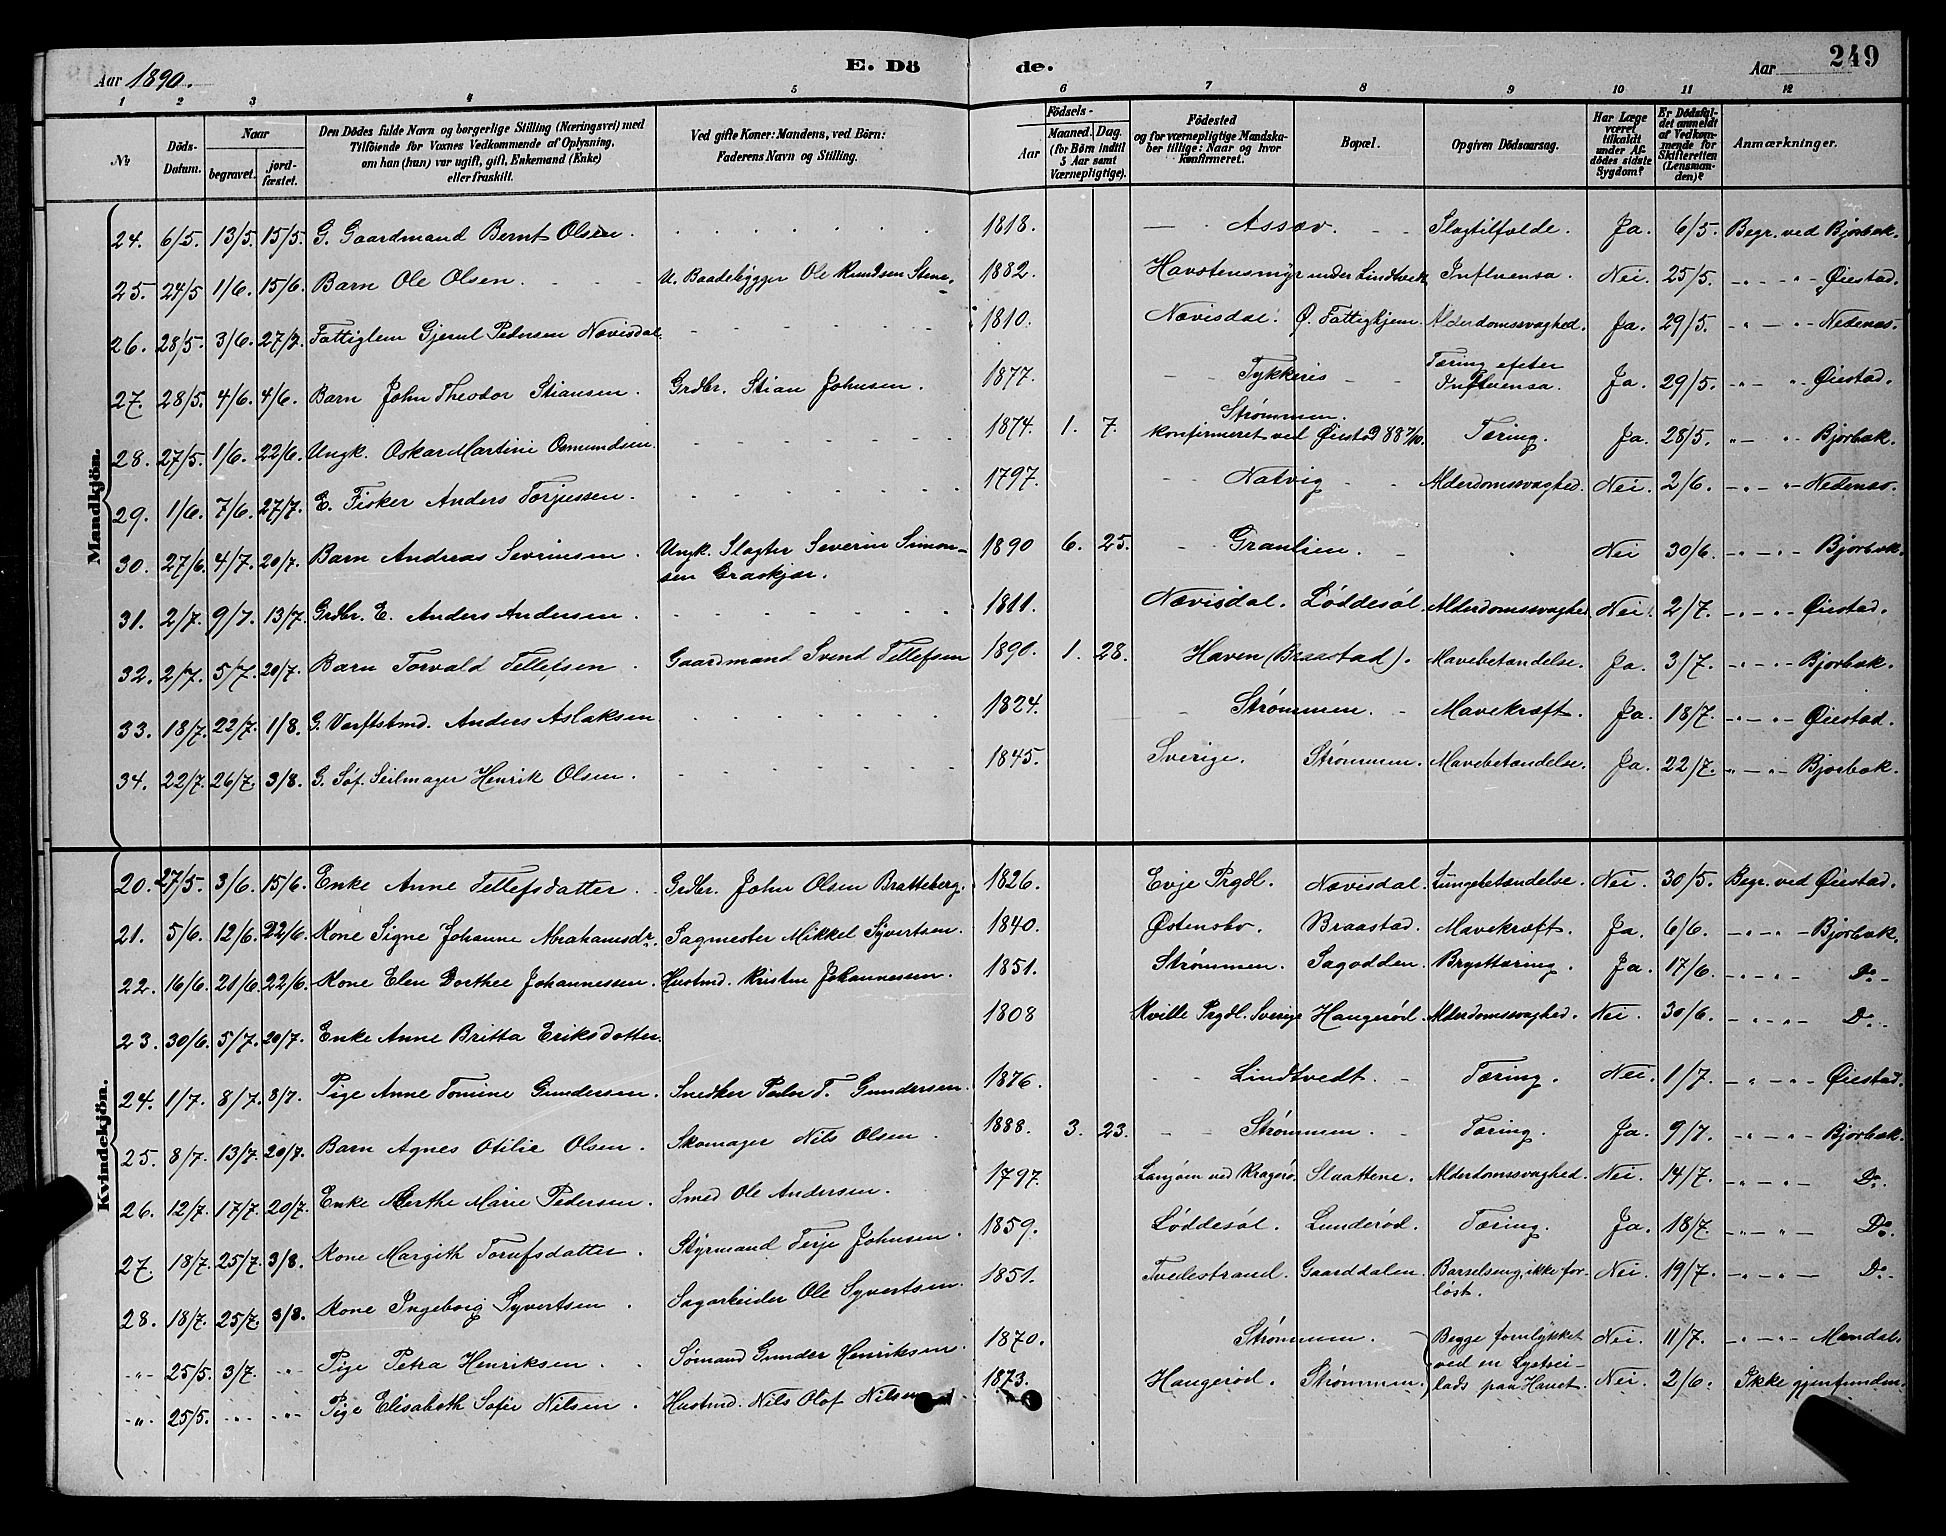 Aar 1890.
E. Döde.
Aar
249
1 2 3 4 5 6 7 8 9 10 11 12
№
Döds-Datum.
Naar begravet. jordfæstet.
Den Dödes fulde Navn og borgerlige Stilling (Næringsvei) med Tilföiende for Voxnes Vedkommende af Oplysning, om han (hun) var ugift, gift, Enkemand (Enke) eller fraskilt.
Ved gifte Koner: Mandens, ved Börn: Faderens Navn og Stilling.
Födsels-
Aar
Maaned. Dag. (for Börn indtil 5 Aar samt Værnepligtige).
Födested og for værnepligtige Mandskaber tillige: Naar og hvor Konfirmeret.
Bopæl.
Opgiven Dödsaarsag.
Har Læge været tilkaldt under Afdödes sidste Sygdom?
Er Dödsfaldet anmeldt af Vedkommende for Skifteretten (Lensmanden)?
Anmærkninger.
Mandkjön.
24. 6/5. 13/5. 15/5. G. Gaardmand Bernt Olsen. 1818. Assæv. Slagtilfælde. Ja. 6/5. Begr. ved Bjorbæk.
25. 24/5 1/6. 15/6. Barn Ole Olsen. U. Baadebygger Ole Knudsen Stene. 1882. Havstensmyr under Lindtvedt Influensa. Nei. 25/5. - " - " Øiestad.
26. 28/5. 3/6. 27/7. Fattiglem Gjerul Pedersen Nævisdal. 1810. Nævisdal. Ø. Fattighjem. Alderdomssvaghed. Ja. 29/5. " - " Nedenæs.
27. 28/5. 4/6. 4/6. Barn John Theodor Stiansen. Grdbr. Stian Johnsen. 1877. Tykkeris Tæring efter Influensa. Ja. 29/5. - " - " Øiestad.
28. 27/5. 1/6. 22/6. Ungk. Oskar Martini Osmundsen. 1874. 1. 7. Strømmen. konfirmeret ved Øiestad 88 7/10. Tæring. Ja. 28/5. " - " Bjorbæk.
29. 1/6. 7/6. 27/7. E. Fisker Anders Torjussen. 1797. Natvig Alderdomssvaghed. Nei. 2/6. - " - " Nedenæs.
30. 27/6. 4/7. 20/7. Barn Andreas Severinsen. Ungk. Slagter Severin Simonsen Graskjær. 1890 6. 25. Granlien. Nei 30/6. - " - " Bjorbæk.
31. 2/7. 9/7. 13/7. Grdbr. E. Anders Andersen. 1811. Nævisdal. Løddesøl. Alderdomssvaghed Nei. 2/7. - " - " Øiestad.
32. 2/7. 5/7. 20/7. Barn Torvald Tellefsen. Gaardmand Svend Tellefsen 1890. 1. 28. Haven (Braastad). Mavebetændelse. Ja. 3/7. - " - " Bjorbæk.
33. 18/7. 22/7. 1/8. G. Værftstmd. Anders Aslaksen 1824. Strømmen. Mavekræft. Ja. 18/7. - " - " Øiestad.
34. 22/7. 26/7. 3/8. G. Søf. Seilmager Henrik Olsen. 1845. Sverige. Strømmen. Mavebetændelse. Ja. 22/7. - " - " Bjorbæk.
Kvindekjön.
20. 27/5. 3/6. 15/6. Enke Anne Tellefsdatter. Grdbr. John Olsen Bratteberg. 1826. Evje Prgdl. Nævisdal. Lungebetændelse. Nei. 30/5. Begr. ved Øiestad.
21. 5/6. 12/6. 22/6. Kone Signe Johanne Abrahamsdr. Sagmester Mikkel Syvertsen. 1840. Østensbo. Braastad. Mavekræft. Ja. 6/6. " - " - Bjorbæk.
22. 16/6. 21/6. 22/6. Kone Elen Dorthee Johannessen. Husmd. Kristen Johannessen. 1851. Strømmen. Sagodden. Brysttæring. Ja. 17/6. - " - " - Do.
23. 30/6. 5/7. 20/7. Enke Anne Britta Eriksdatter. 1808 Kville Prgdl. Sverige Haugerød. Alderdomssvaghed. Nei. 30/6. - " - " - Do.
24. 1/7. 8/7. 8/7. Pige Anne Tomine Gundersen. Snedker Peder T. Gundersen. 1876. Lindtvedt. Tæring. Nei. 1/7. - " - " - Øiestad.
25. 8/7. 13/7. 20/7. Barn Agnes Otilie Olsen. Skomager Nils Olsen. 1888. 3. 23. Strømmen. Tæring. Ja. 9/7. - " - " - Bjorbæk.
26. 12/7. 17/7. 20/7. Enke Merthe Marie Pedersen. Smed Ole Andersen. 1797. Langøen ved Kragerø. Slaattene. Alderdomssvaghed. Nei. 14/7. - " - " - Do.
27. 18/7. 25/7. 3/8. Kone Margith Torufsdatter. Styrmand Terje Johnsen. 1859. Løddesøl. Lunderød. Tæring. Ja. 18/7. - " - " - Do.
28. 18/7. 25/7. 3/8. Kone Ingeborg Syvertsen. Sagarbeider Ole Syvertsen. 1851. Tvedestrand. Gaarddalen. Barselseng, ikke forløst. Nei. 19/7. - " - " - Do.
- " - 25/5. 3/7. - " - Pige Petra Henriksen. Sømand Gunder Henriksen. 1870. Strømmen. Begge forulykket ved en Lystseilads paa Havet. Nei. 11/7. - " - " - Mandal.
- " - 25/5. - " - - " - Pige Elisabeth Sofie Nilsen. Husmd. Nils Olof Nilsen 1873. Haugerød. Strømmen. Nei. 2/6. Ikke gjenfunden.